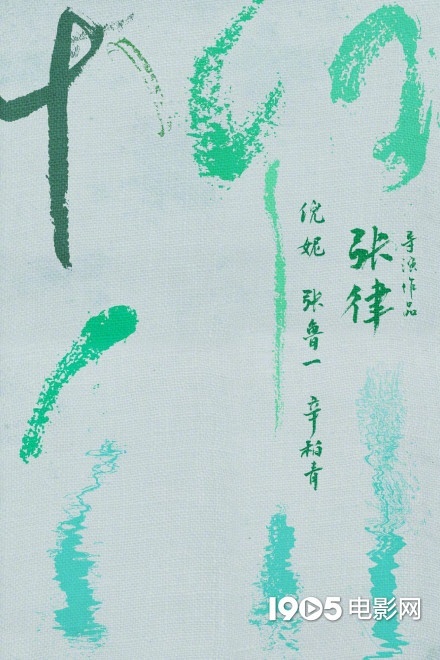 柳川
导演作品
张律
倪妮 张鲁一 辛柏青
1905电影网